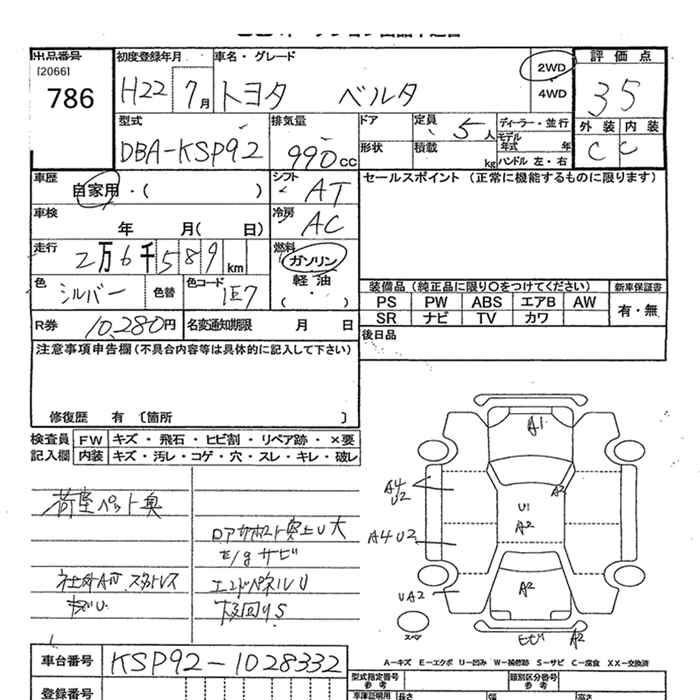 出品番号
[2066]
786
初度登録年月
H22 7月
車名・グレード
トヨタ ベルタ
2WD
・
4WD
評価点
3 5
型式
DBA-KSP92
排気量
990cc
ドア
形状
定員
5人
積載
kg
ディーラー・並行
モデル
年式 年
ハンドル 左・右
外装 内装
C C
車歴
自家用・( )
シフト
AT
車検
年 月( 日)
冷房
AC
走行
2万6千589km
燃料
ガソリン
・
軽油
( ・ )
色
シルバー
色替
色コード
1E7
R券
10,280円
名変通知期限 月 日
セールスポイント (正常に機能するものに限ります)
装備品 (純正品に限り○をつけてください)
新車保証書
PS PW ABS エアB AW
有・無
SR ナビ TV カワ
後日品
注意事項申告欄(不具合内容等は具体的に記入して下さい)
修復歴 有 〔箇所 〕
検査員
記入欄
FW キズ・飛石・ヒビ割・リペア跡・×要
内装 キズ・汚レ・コゲ・穴・スレ・キレ・破レ
荷室ペット臭
U大
サビ
社外
エンドパネルU
A1
A4
U2
A2
U1
A2
A4 U2
UA2
A2
スペ
A2
A-キズ E-エクボ U-凹み W-補修跡 S-サビ C-腐食 XX-交換済
車台番号
KSP92-1028332
登録番号
型式指定番号
参考
類別区分番号
参考
長さ
幅
高さ